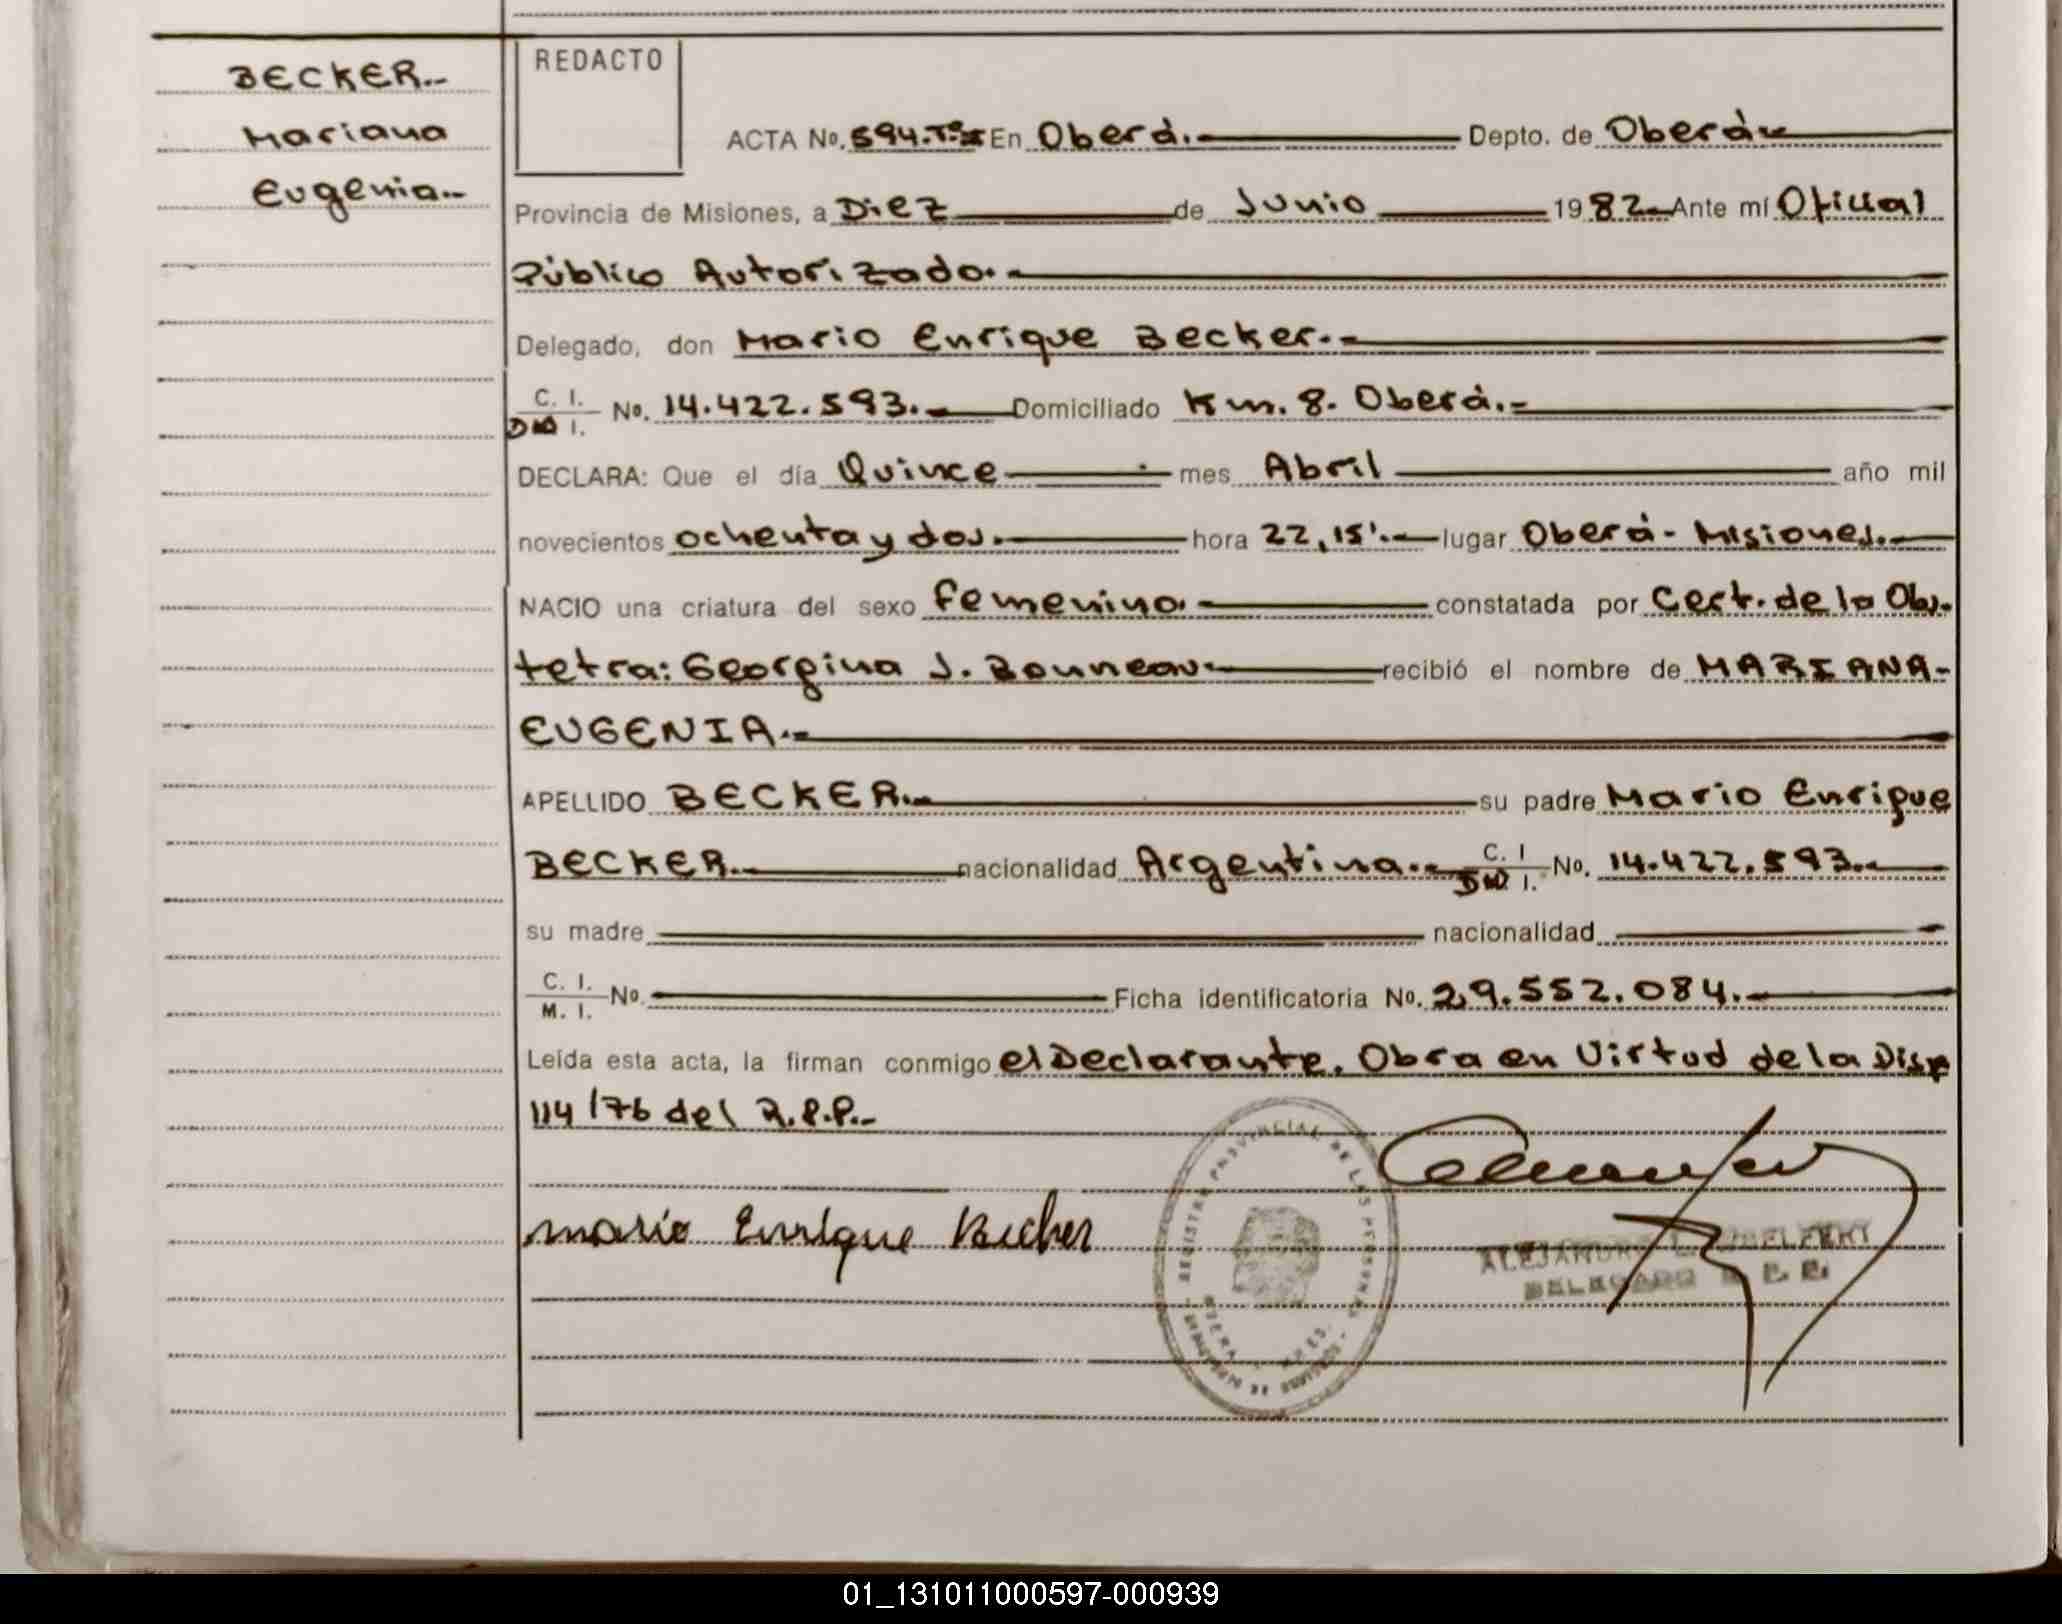 BECKER.-
Mariana
Eugenia.-
REDACTO
ACTA No. 594.Tº En Oberá.- Depto. de Oberá
Provincia de Misiones, a Diez de Junio 1982.- Ante mí Oficial
Público Autorizado.-
Delegado, don Mario Enrique Becker.-
C. I. DNI. No. 14.422.593.- Domiciliado Km. 8. Oberá.-
DECLARA: Que el día Quince mes Abril año mil
novecientos ochenta y dos.- hora 22,15'.- lugar Oberá- Misiones.-
NACIO una criatura del sexo femenino.- constatada por Cert. de la Obs.
tetra: Georgina J. Bonneau.- recibió el nombre de MARIANA-
EUGENIA.-
APELLIDO BECKER.- su padre Mario Enrique
BECKER.- nacionalidad Argentina.- C. I DNI. No. 14.422.593.-
su madre nacionalidad
C. I. M. I. No. Ficha identificatoria No. 29.552.084.-
Leída esta acta, la firman conmigo el Declarante. Obra en Virtud de la Disp
114/76 del R.P.P.-
Mario Enrique Becker
REGISTRO PROVINCIAL DE LAS PERSONAS
OBERA - MNES.
ALEJANDRO L.
DELEGADO
01_131011000597-000939